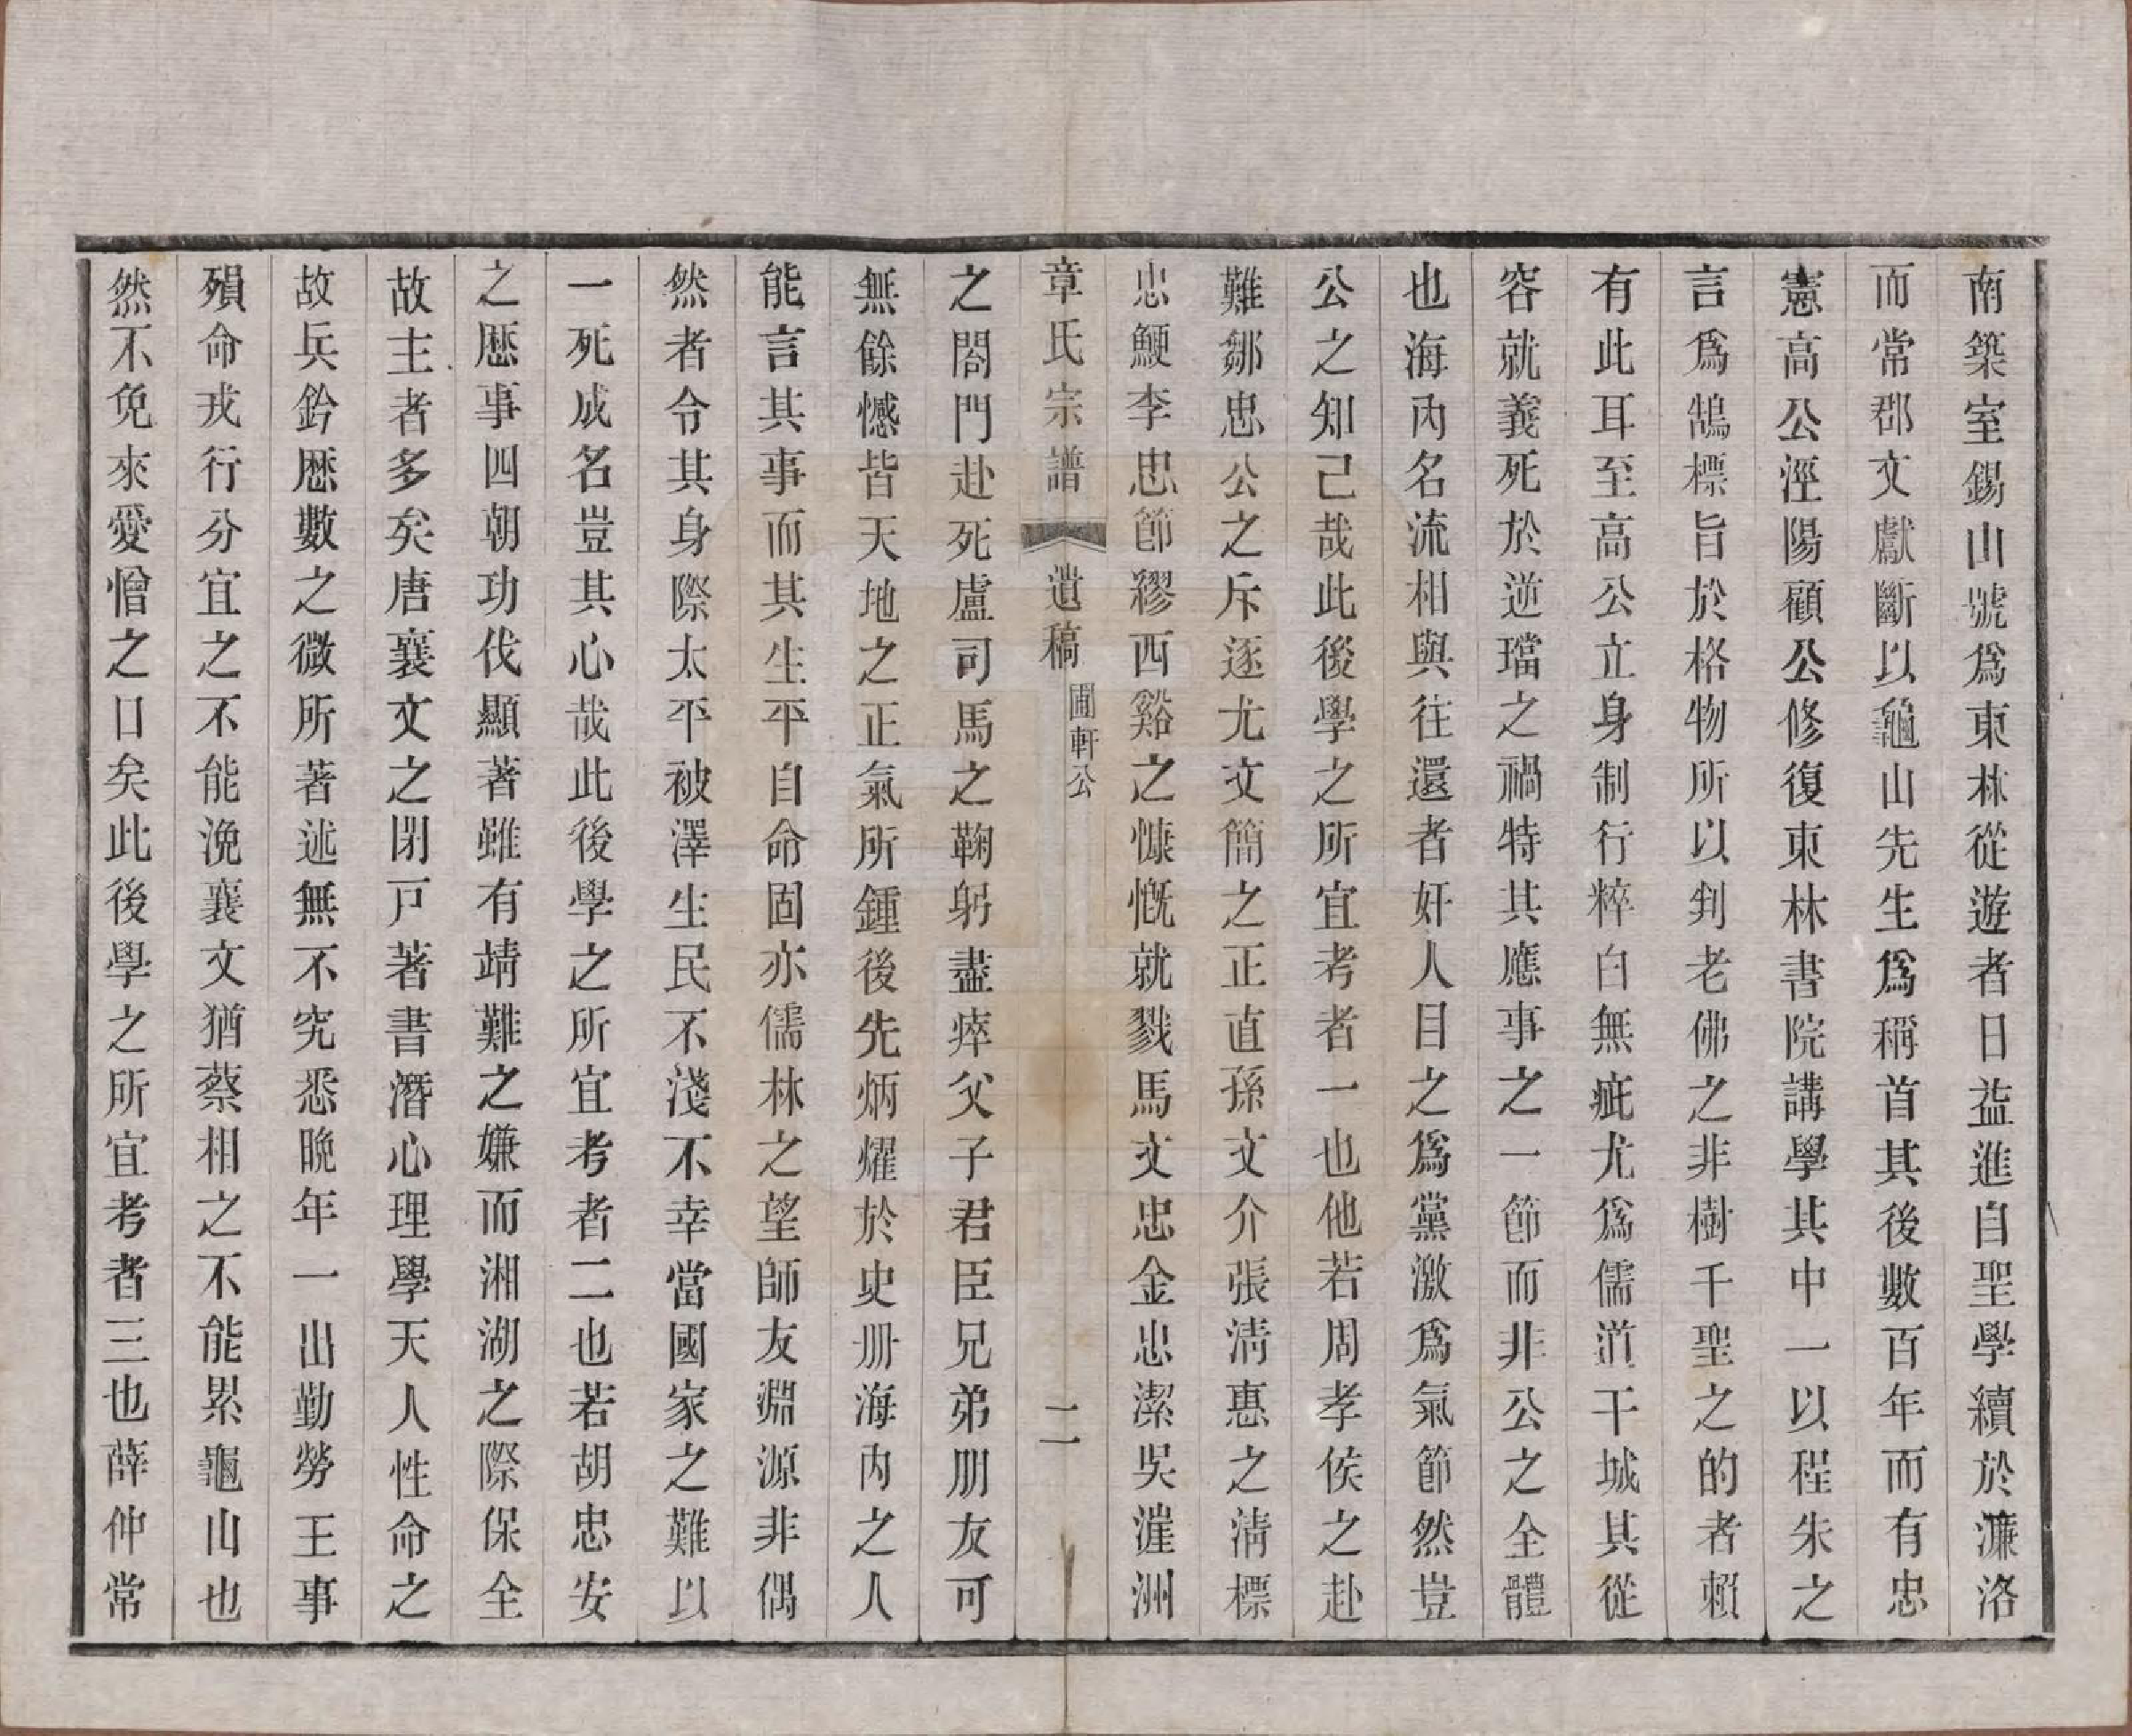 南築室錫山號爲東林從遊者日益進自聖學續於濂洛
而常郡文獻斷以龜山先生爲稱首其後數百年而有忠
憲高公涇陽顧公修復東林書院講學其中一以程朱之
言爲鵠標旨於格物所以剕老佛之非樹千聖之的者賴
有此耳至高公立身制行粹白無疵尤爲儒道干城其從
容就義死於逆璫之禍特其應事之一節而非公之全體
也海內名流相與往還者奸人目之爲黨激爲氣節然豈
公之知己哉此後學之所宜考者一也他若周孝侯之赴
難鄒忠公之斥逐尤文簡之正直孫文介張清惠之淸標
忠鯁李忠節繆西谿之慷慨就戮馬文忠金忠潔吳漄洲
章氏宗譜 遺稿 圃軒公 二
之閤門赴死盧司馬之鞠躬盡瘁父子君臣兄弟朋友可
無餘憾皆天地之正氣所鍾後先炳燿於史册海內之人
能言其事而其生平自命固亦儒林之望師友淵源非偶
然者令其身際太平被澤生民不淺不幸當國家之難以
一死成名豈其心哉此後學之所宜考者二也若胡忠安
之歷事四朝功伐顯著雖有靖難之嫌而湘湖之際保全
故主者多矣唐襄文之閉戸著書潛心理學天人性命之
故兵鈐歷數之微所著述無不究悉晩年一出勤勞王事
殞命戎行分宜之不能浼襄文猶蔡相之不能累龜山也
然不免來愛憎之口矣此後學之所宜考者三也薛仲常